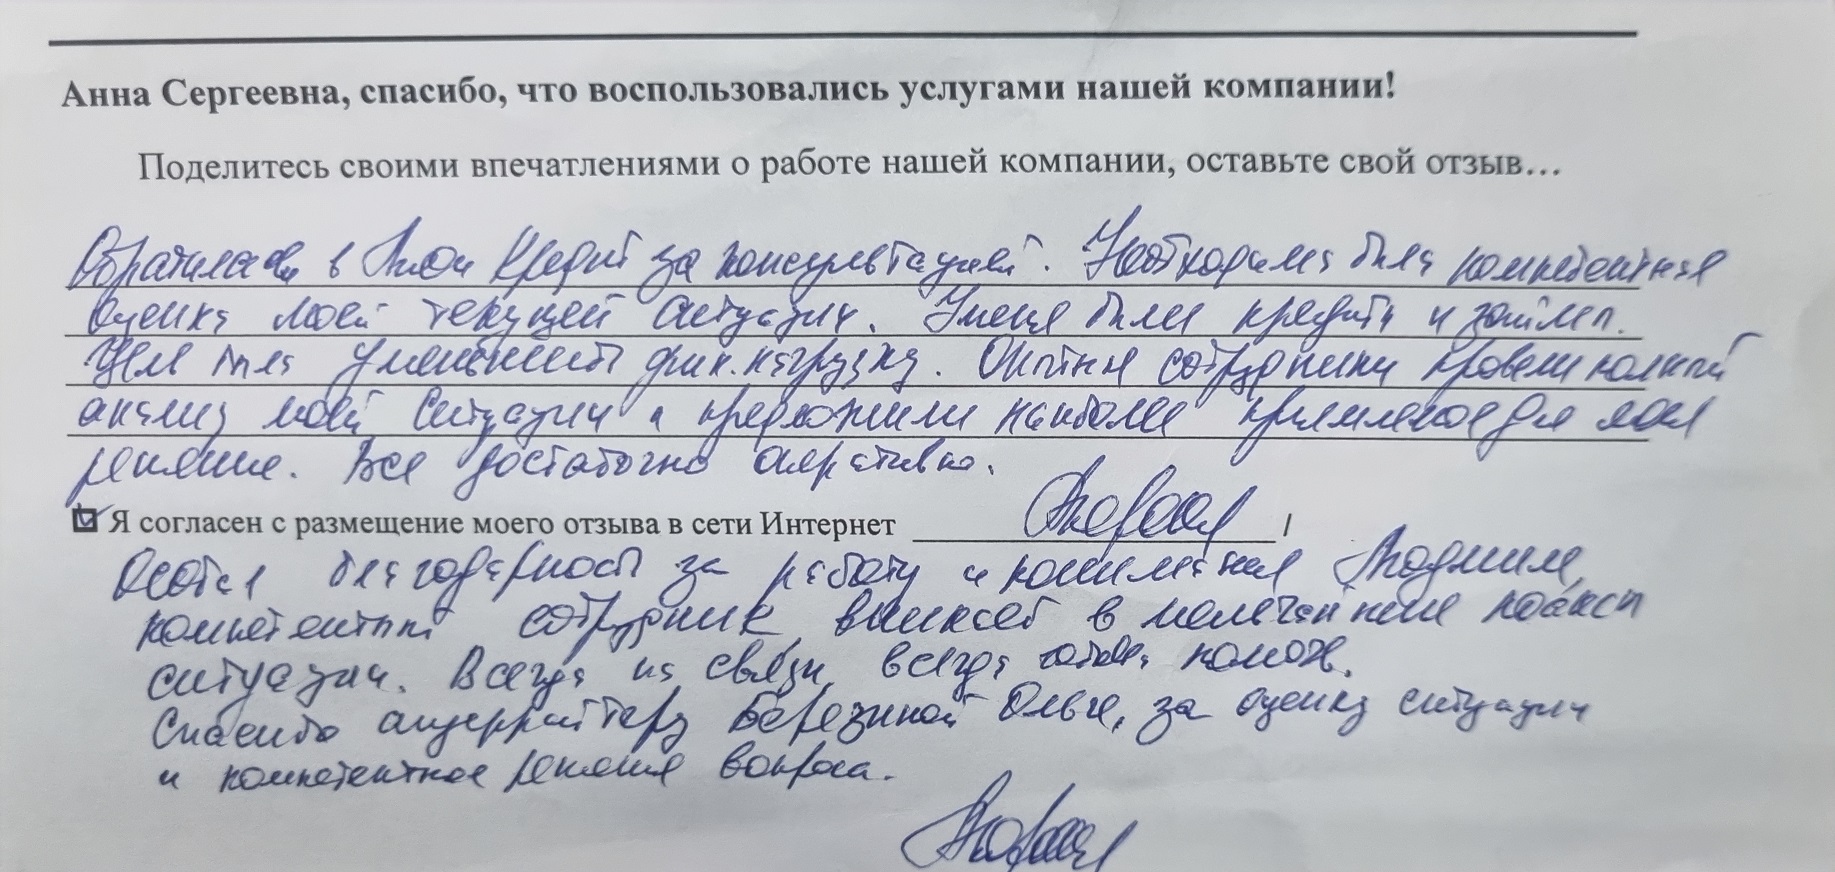 Анна Сергеевна, спасибо, что воспользовались услугами нашей компании!
Поделитесь своими впечатлениями о работе нашей компании, оставьте свой отзыв…
Обратилась в Кредит за консультацией. Необходима была компетентная
оценка моей текущей ситуации. У меня были кредиты и займы.
Цель была уменьшить фин. нагрузку. Опытные сотрудники провели полный
анализ моей ситуации и предложили наиболее приемлемое для меня
решение. Все достаточно оперативно.
Я согласен с размещение моего отзыва в сети Интернет /
Особая благодарность за работу и понимание Людмиле,
компетентный сотрудник, вникает в мельчайшие нюансы
ситуации. Всегда на связи, всегда готова помочь.
Спасибо андеррайтеру Березиной Ольге, за оценку ситуации
и компетентное решение вопроса.